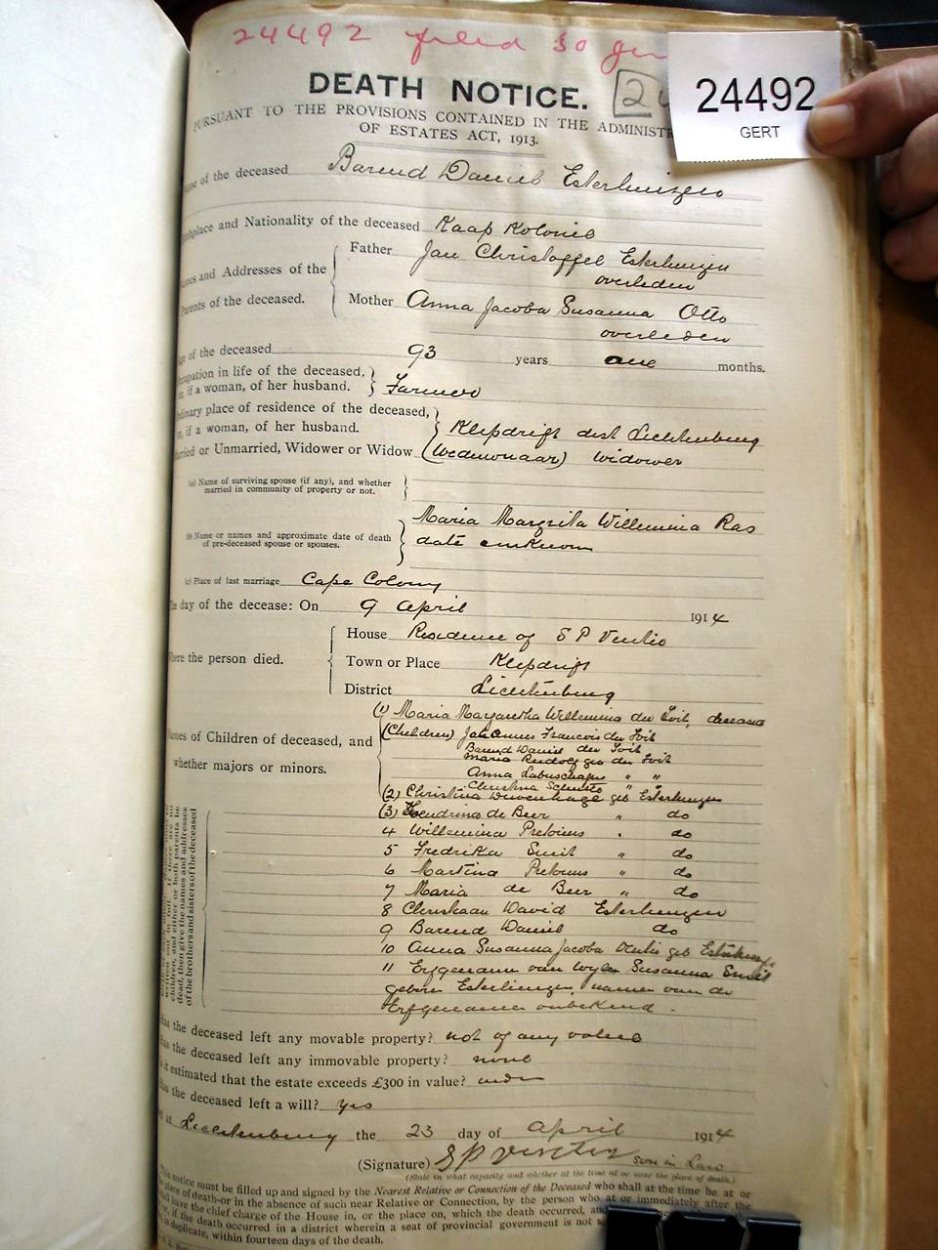 24492 filed 30
24492
GERT
DEATH NOTICE.
PURSUANT TO THE PROVISIONS CONTAINED IN THE ADMINISTR
OF ESTATES ACT, 1913.
of the deceased Barend Daniel Esterhuizen
and Nationality of the deceased Kaap Kolonie
Names and Addresses of the Parents of the deceased.
Father Jan Christoffel Esterhuizen
overleden
Mother Anna Jacoba Susanna Otto
overleden
of the deceased 93 years one months.
in life of the deceased, if a woman, of her husband. Farmer
place of residence of the deceased,
if a woman, of her husband. Klipdrift dist Lichtenburg
or Unmarried, Widower or Widow (Wedewenaar) Widower
(a) Name of surviving spouse (if any), and whether
married in community of property or not.
(b) Name or names and approximate date of death
of pre-deceased spouse or spouses.
Maria Margrita Willemina Ras
date unknown
(c) Place of last marriage Cape Colony
day of the decease: On 9 April 1914
Where the person died.
House Residence of S P Venter
Town or Place Klipdrift
District Lichtenburg
Names of Children of deceased, and
whether majors or minors.
(1) Maria Margaretha Willemina du Toit, deceased
(Children) Johannes Francois du Toit
Barend Daniel du Toit
Maria geb du Toit
Anna Labuschagne " "
Christina " "
(2) Christina geb Esterhuizen
(3) Hendrina de Beer " do
4 Willemina Pretorius " do
5 Fredrika Smit " do
6 Martina Pretorius " do
7 Maria de Beer " do
8 Christiaan David Esterhuizen
9 Barend Daniel do
10 Anna Susanna Jacoba Venter geb
11 Erfgenamen van wylen Susanna Smit
geboren Esterhuizen, namen van de
Erfgenamen onbekend.
children, and either or both parents be
dead, then give the names and addresses
of the brothers and sisters of the deceased
the deceased left any movable property? not of any value
the deceased left any immovable property? none
estimated that the estate exceeds £300 in value? under
the deceased left a will? yes
at Lichtenburg the 23 day of April 1914
(Signature) S P Venter son in Law
(State in what capacity and whether at the time at or near the place of death.)
notice must be filled up and signed by the Nearest Relative or Connection of the Deceased who shall at the time be at or
place of death—or in the absence of such near Relative or Connection, by the person who at or immediately after the
have the chief charge of the House in, or the place on, which the death occurred, and
if the death occurred in a district wherein a seat of provincial government is not
in duplicate, within fourteen days of the death.